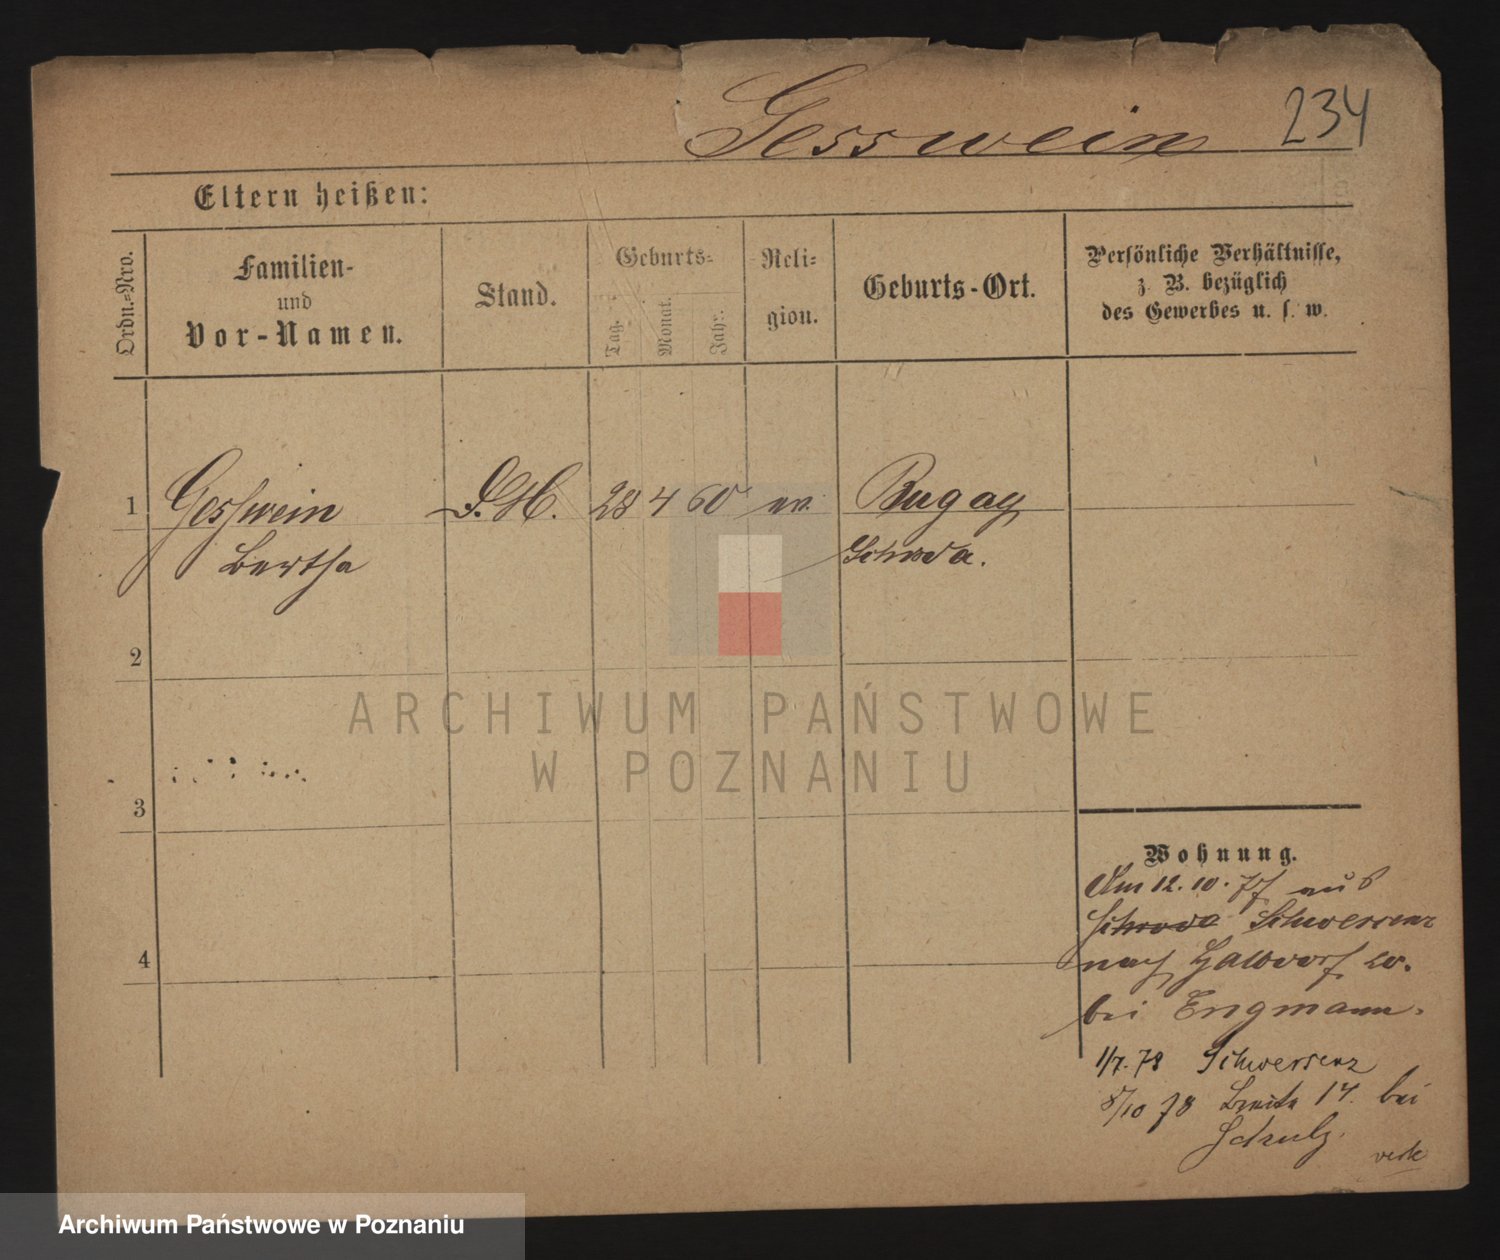 Gesswein 234
Eltern heißen:
Ordn.=Nro.
Familien-
und
Vor-Namen.
Stand.
Geburts=
Tag.
Monat.
Jahr.
Reli=
gion.
Geburts-Ort.
Persönliche Verhältnisse,
z. B. bezüglich
des Gewerbes u. s. w.
1 Gesswein D.M. 28 4 60 ev. Bugay
Bertha Schroda.
2
3
4
Wohnung.
Am 12. 10. 77 aus
Schroda Schwersenz
nach
bei Engmann.
1/7. 78 Schwersenz
8/10 78 Breite 14. bei
Schulz.
ARCHIWUM PAŃSTWOWE
W POZNANIU
Archiwum Państwowe w Poznaniu